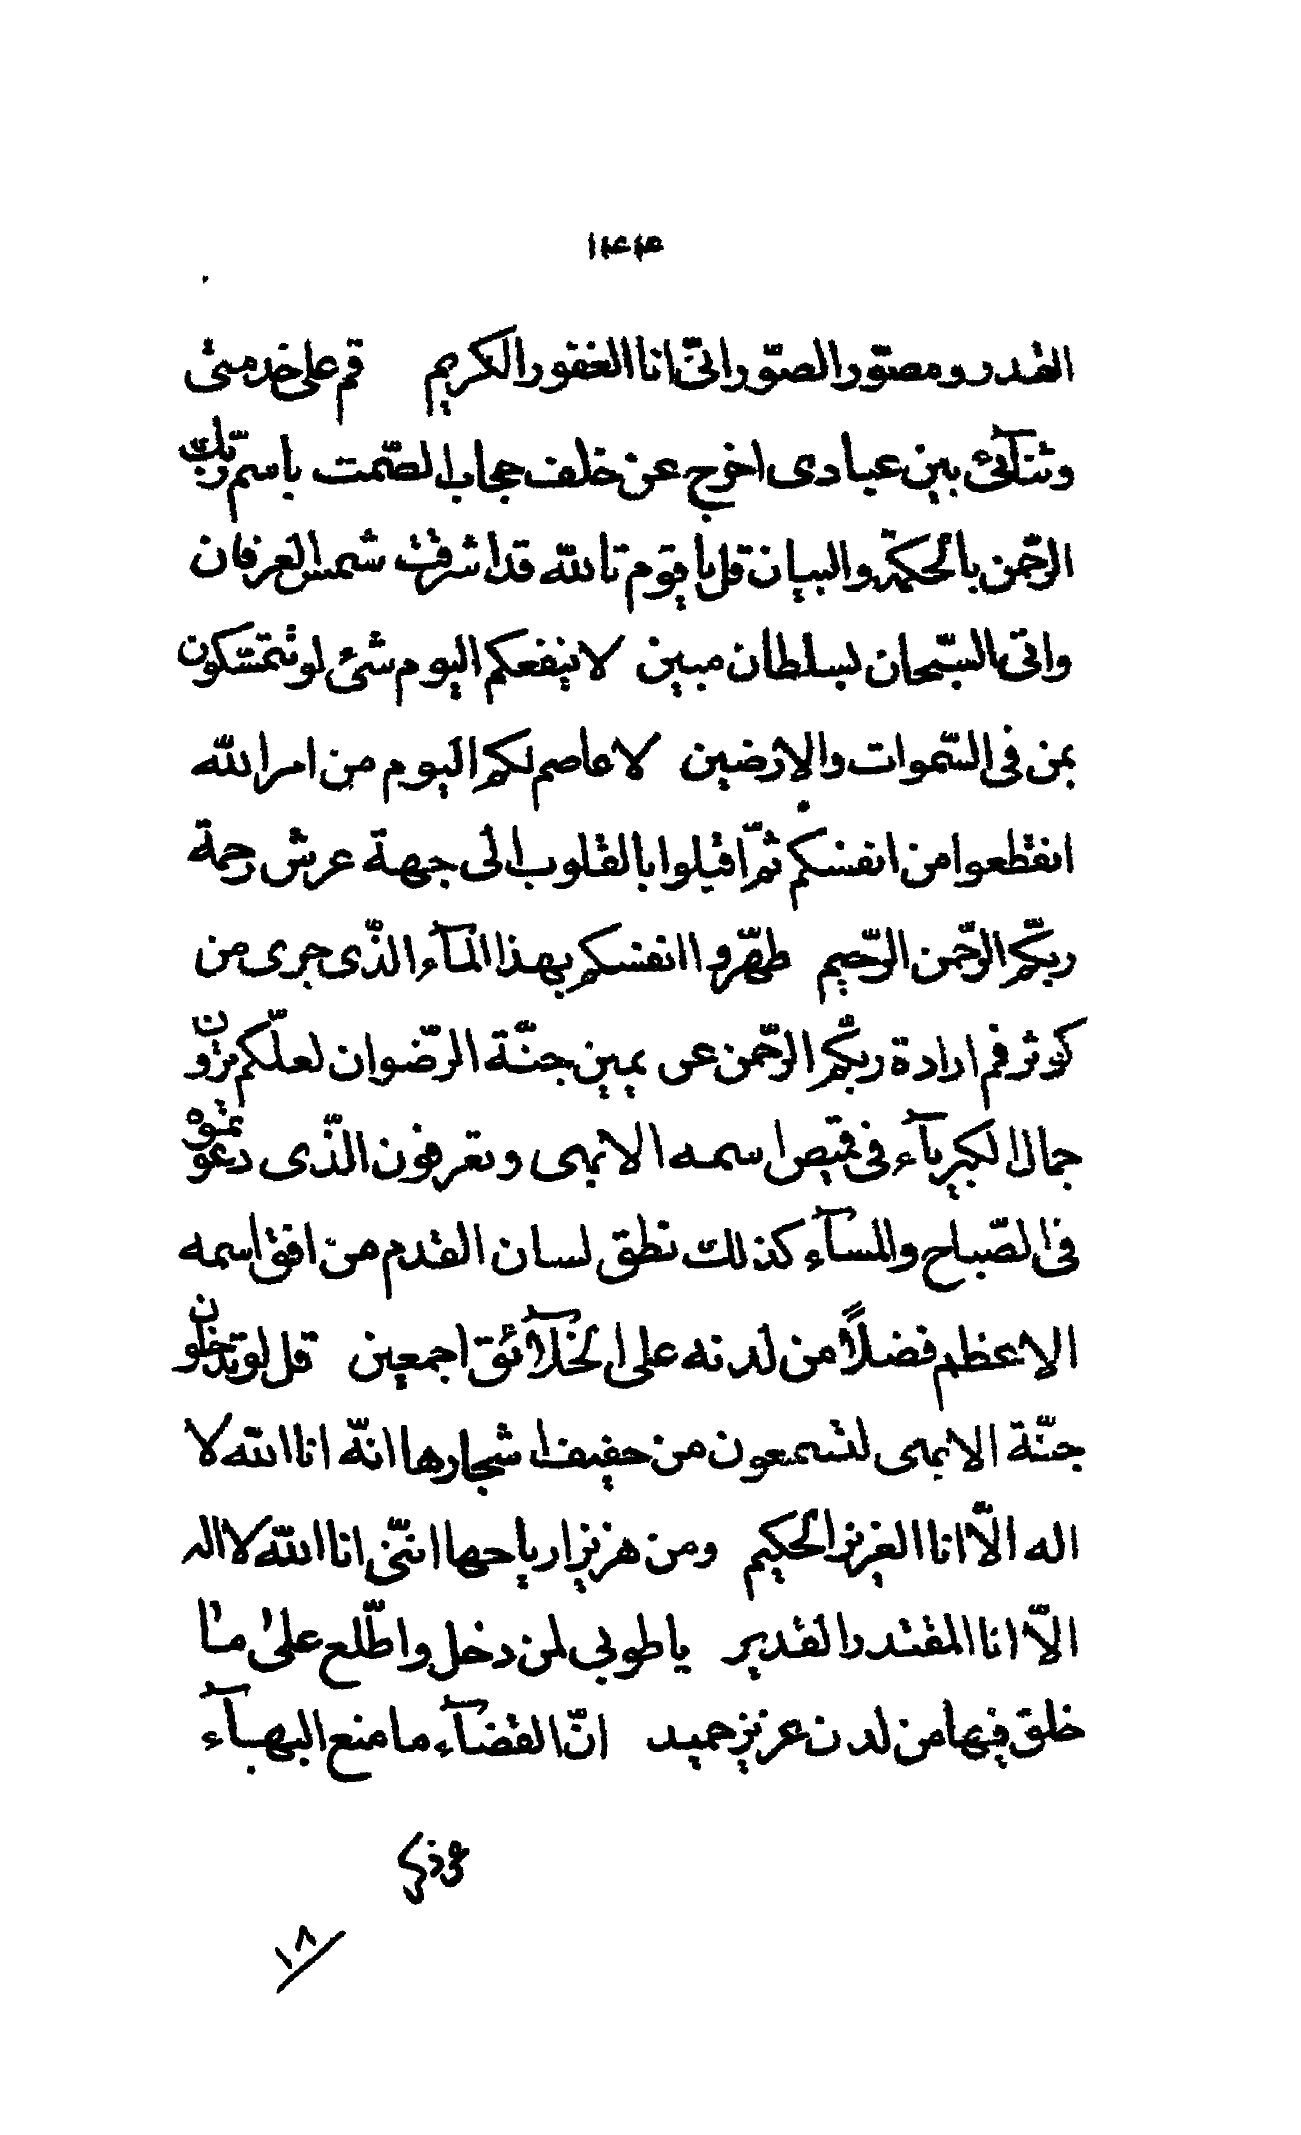 ۱۴۴
القدر و مصوّر الصّور انّنی انا الغفور الکریم قم علی خدمتی
و ثنآئی بین عبادی اخرج عن خلف حجاب الصّمت باسم ربّک
الرّحمن بالحکمة و البیان قل یا قوم تاللّه قد اشرقت شمس العرفان
و اتی السّبحان بسلطان مبین لا ینفعکم الیوم شیء لو تتمسّکون
بمن فی السّموات و الارضین لا عاصم لکم الیوم من امر اللّه
انقطعوا من انفسکم ثمّ اقبلوا بالقلوب الی جهة عرش رحمة
ربّکم الرّحمن الرّحیم طهّروا انفسکم بهذا المآء الّذی جری من
کوثر فم ارادة ربّکم الرّحمن عن یمین جنّة الرّضوان لعلّکم ترون
جمال الکبریآء فی قمیص اسمه الابهی و تعرفون الّذی دعوتموه
فی الصّباح و المسآء کذلک نطق لسان القدم من افق اسمه
الاعظم فضلاً من لدنه علی الخلآئق اجمعین قل لو تدخلون
جنّة الابهی لتسمعون من حفیف اشجارها انّه انا اللّه لا
اله الّا انا العزیز الحکیم و من هزیز اریاحها انّنی انا اللّه لا اله
الّا انا المقتدر القدیر یا طوبی لمن دخل و اطّلع علی ما
خلق فیها من لدن عزیز حمید انّ القضآء ما منع البهآء
عن ذکر
۱۸